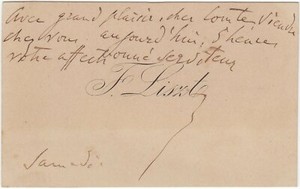 Avec grand plaisir, cher Comte, viendrai
chez vous, aujourd'hui, 5 heures
votre affectionné serviteur
F. Liszt
Samedi